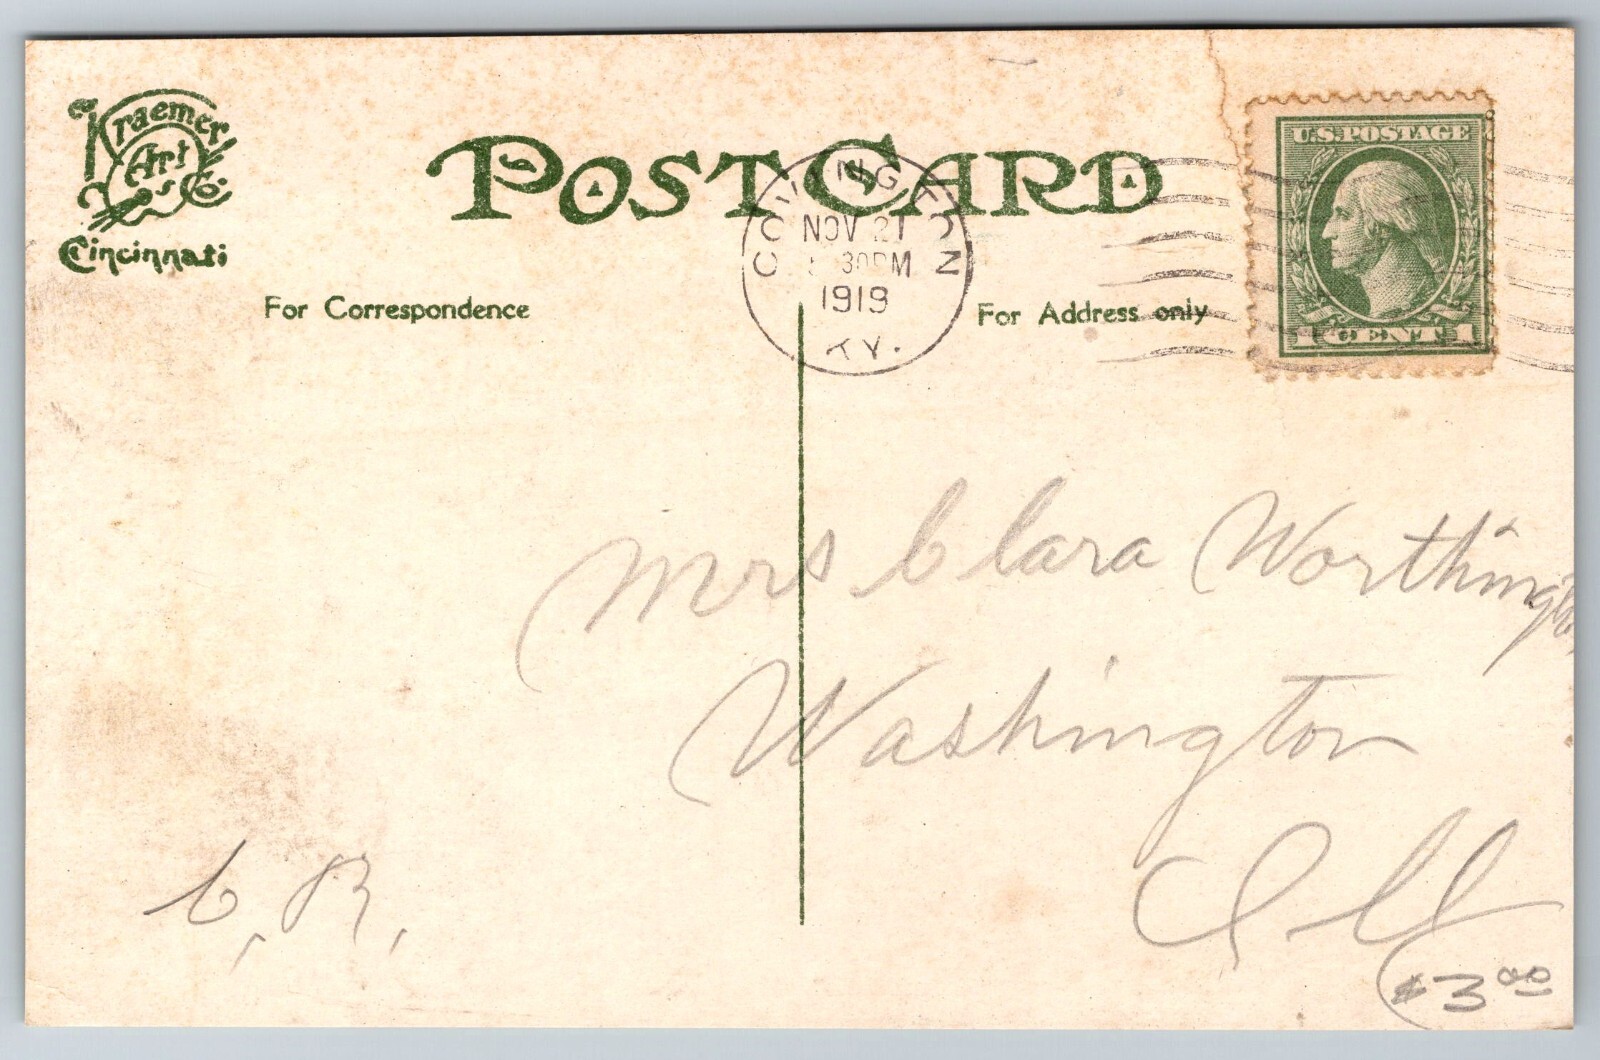 Kraemer
Art
& Co
Cincinnati
POST CARD
For Correspondence
For Address only
COVINGTON
NOV 21
30PM
1919
KY.
U.S. POSTAGE
1 CENT 1
Mrs Clara Worthington
Washington
Ill
C. R.
$3.00